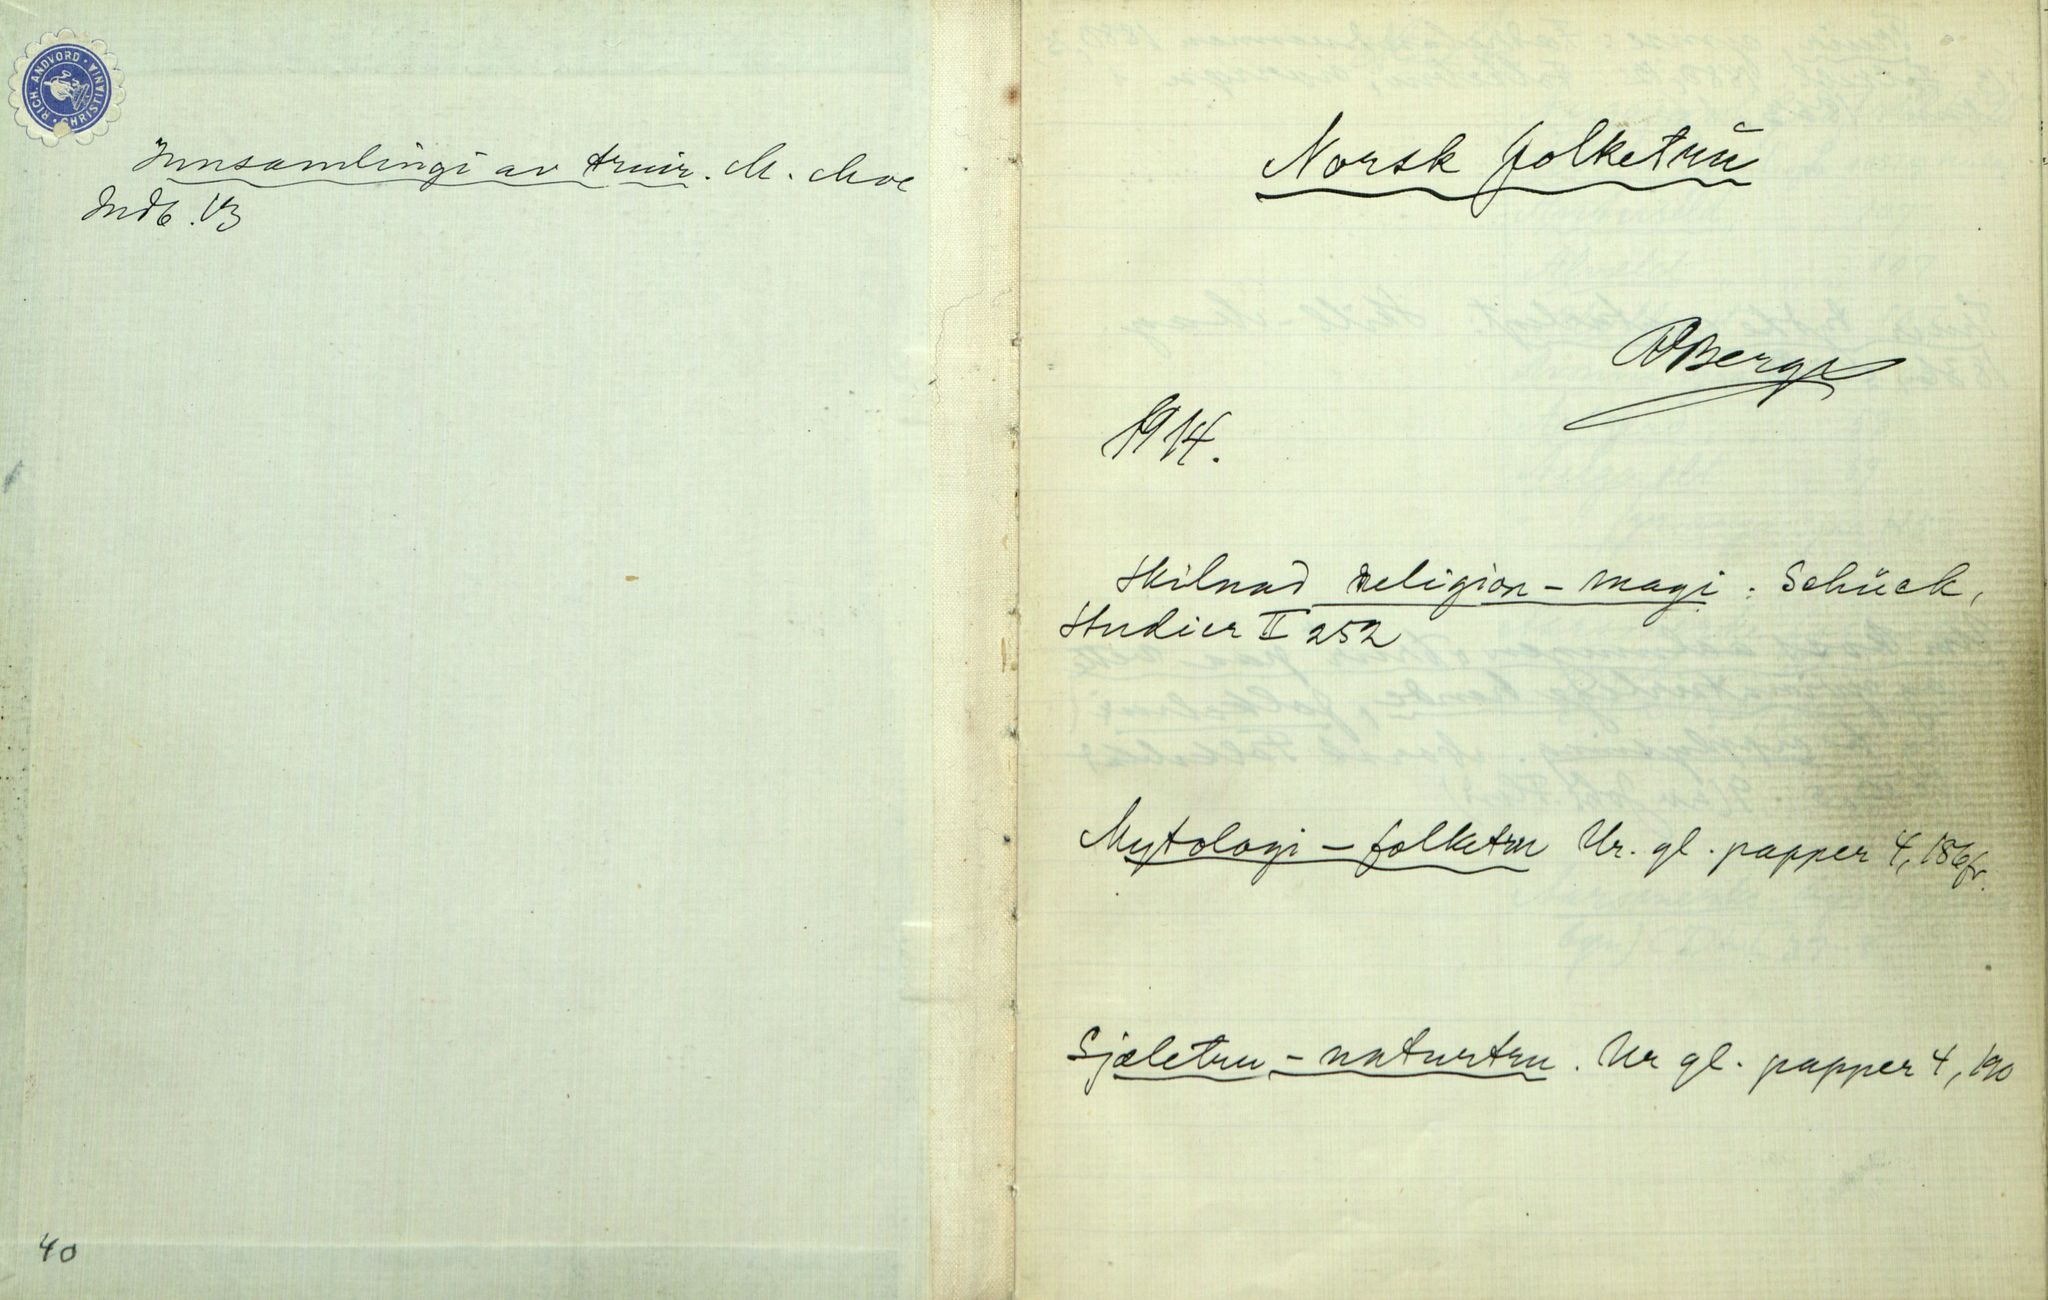 RICH. ANDVORD · CHRISTIANIA
Innsamlingi av truir. M. Moe
Indb. 13
40
Norsk folketru
RBerge
1914.
Skilnad religion - magi: Schück,
Studier II 252
Mytologi - folketru Ur. gl. papper 4, 186fr.
Sjæletru - naturtru. Ur gl. papper 4, 190